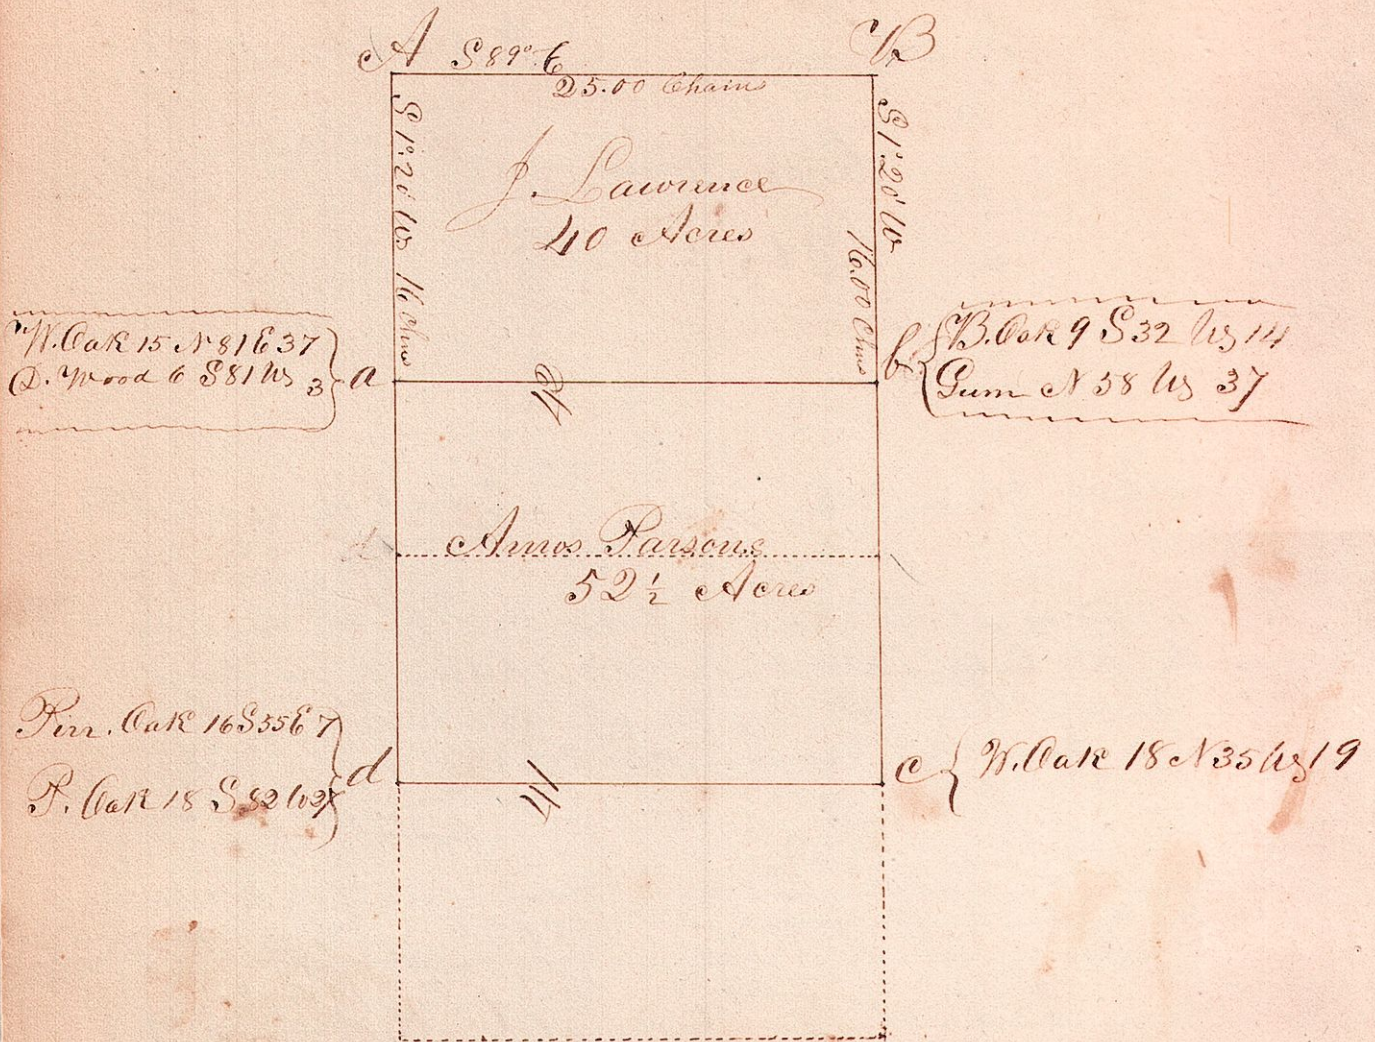 A S 89° E B
25.00 Chains
S 1° 20' W 16 Chns
S 1° 20' W
16.00 Chns
J. Lawrence
40 Acres
W. Oak 15 N 81 E 37
D. Wood 6 S 81 W 3
a
b
B. Oak 9 S 32 W 14
Gum N 58 W 37
Amos Parsons
52 1/2 Acres
Pin. Oak 16 S 55 E 7
P. Oak 18 S 82 W
d
c
W. Oak 18 N 35 W 19